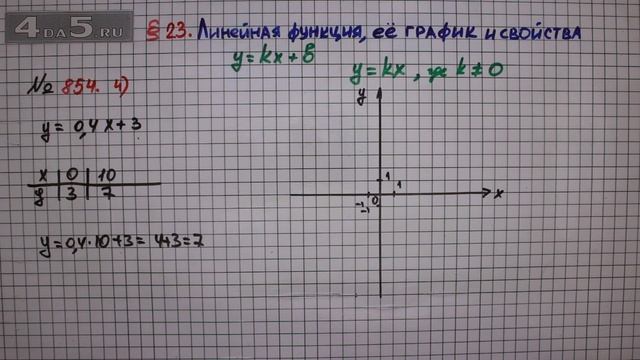 4DA5.RU
§ 23. Линейная функция, её график и свойства
y = kx + b
y = kx, где k ≠ 0
№ 854. 4)
y = 0,4x + 3
x | 0 | 10
y | 3 | 7
y = 0,4·10+3 = 4+3 = 7
y
1
1
0
x
-1
-1